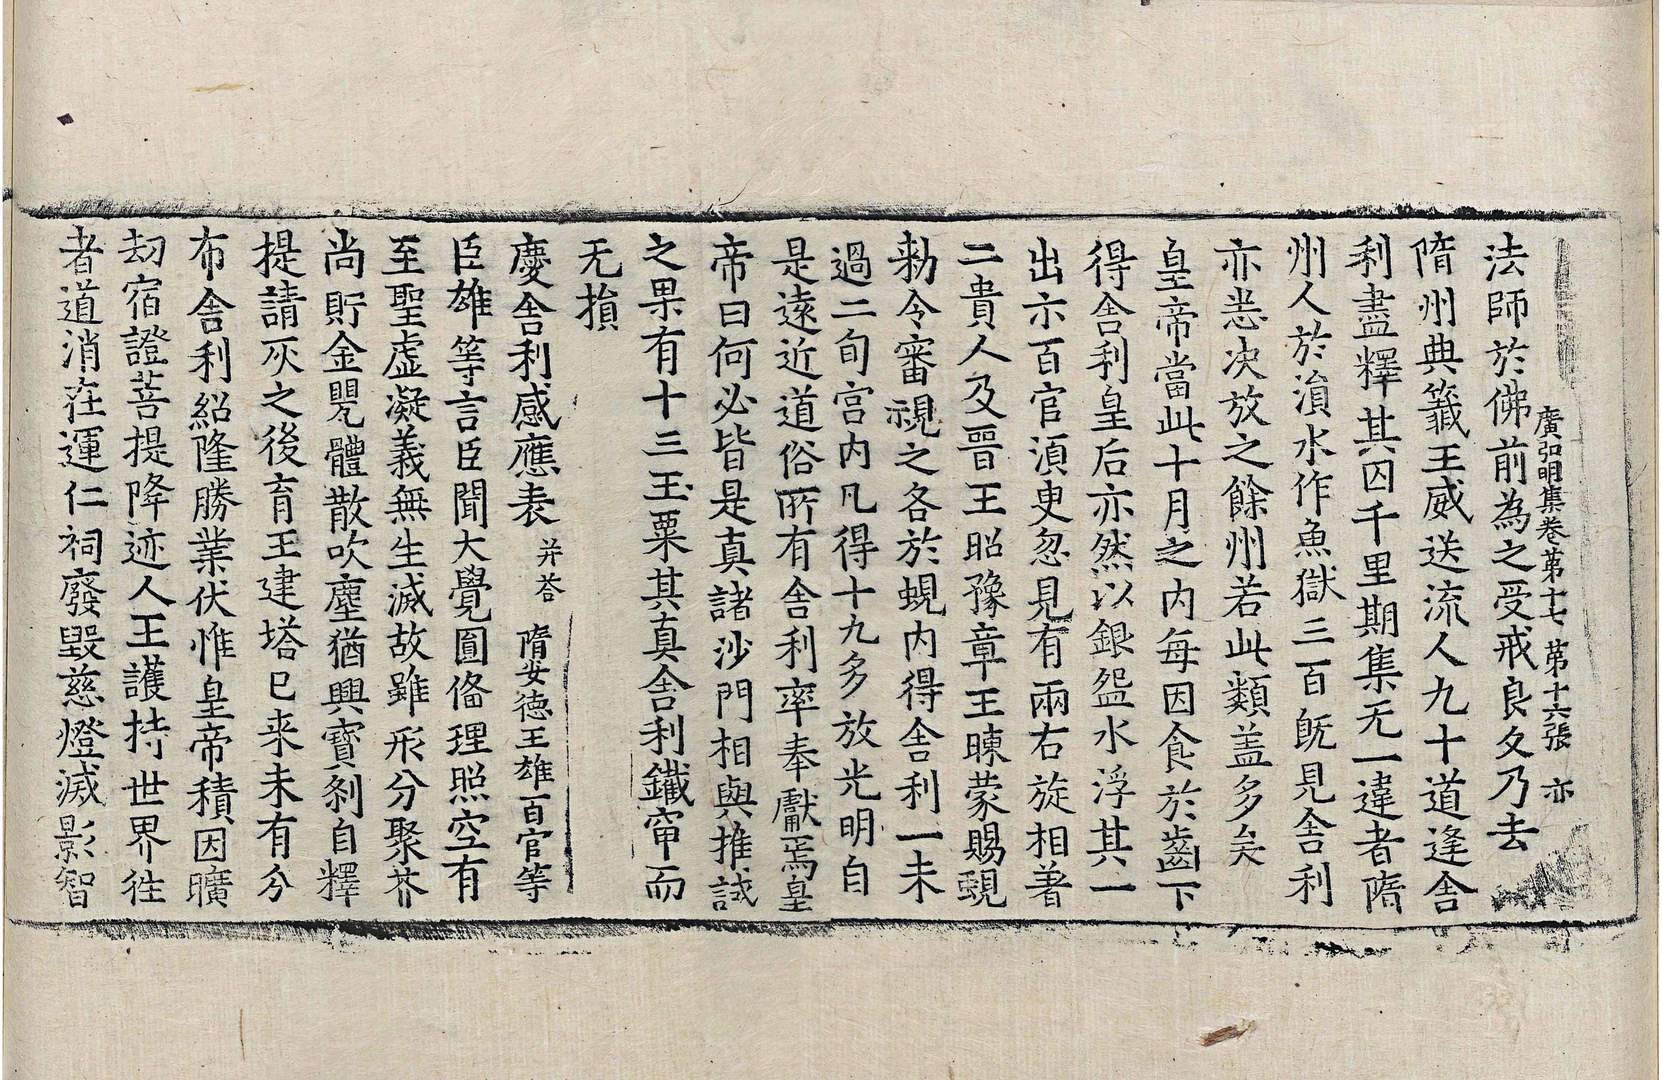 廣弘明集卷第十七　第十六張　亦
法師於佛前為之受戒良久乃去
隋州典籤王威送流人九十道逢舍
利盡釋其囚千里期集无一違者隋
州人於溳水作魚獄三百既見舍利
亦悉决放之餘州若此類盖多矣
皇帝當此十月之内每因食於齒下
得舍利皇后亦然以銀盌水浮其一
出示百官湏臾忽見有兩右旋相著
二貴人及晉王昭豫章王暕蒙賜蜆
勑令審視之各於蜆内得舍利一未
過二旬宫内凡得十九多放光明自
是遠近道俗所有舍利率奉獻焉皇
帝曰何必皆是真諸沙門相與推試
之果有十三玉粟其真舍利鐵𥦗而
无損
慶舍利感應表　并荅　隋安德王雄百官等
臣雄等言臣聞大覺圓俻理照空有
至聖虚凝義無生滅故雖形分聚芥
尚貯金甖體散吹塵猶興寶刹自釋
提請灰之後育王建塔已来未有分
布舍利紹隆勝業伏惟皇帝積因曠
劫宿證菩提降迹人王護持世界徃
者道消在運仁祠廢毀慈燈滅影智